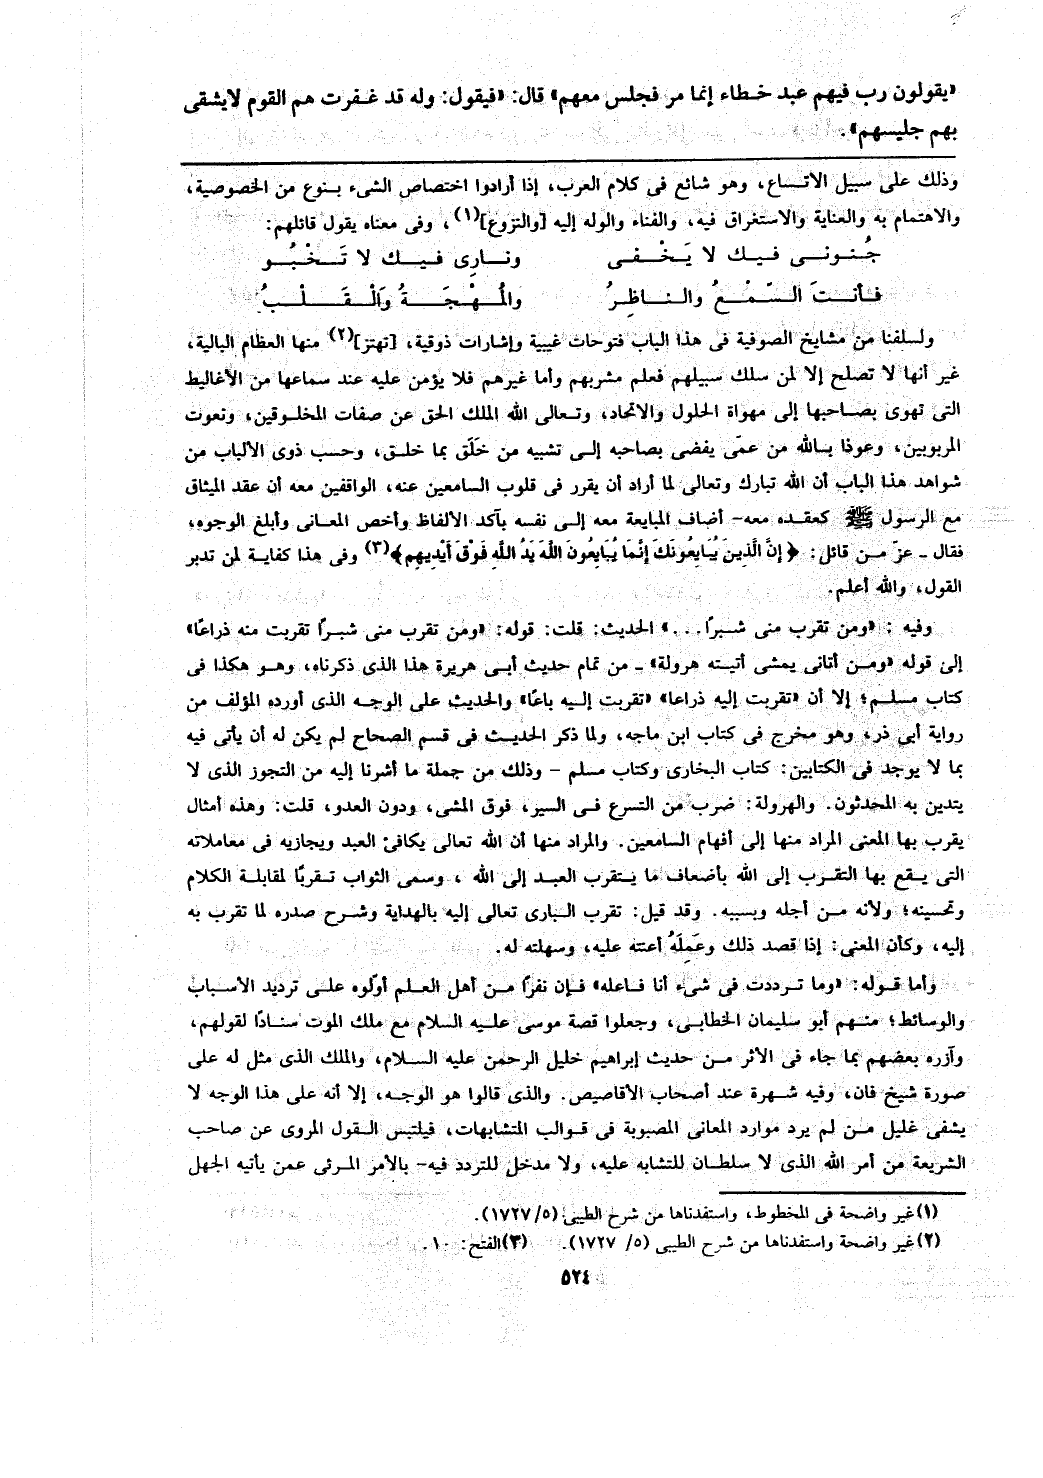 «يقولون رب فيهم عبد خطاء إنما مر فجلس معهم» قال: «فيقول: وله قد غفرت هم القوم لايشقى
بهم جليسهم».
وذلك على سبيل الاتساع، وهو شائع فى كلام العرب، إذا أرادوا اختصاص الشىء بنوع من الخصوصية،
والاهتمام به والعناية والاستغراق فيه، والفناء والوله إليه [والنزوع](١)، وفى معناه يقول قائلهم:
جُنونى فيك لا يَخْفى ونارِى فيك لا تَخْبُو
فأنتَ السَّمْعُ والناظِرُ والمُهْجَةُ وَالْقَلْبُ
ولسلفنا من مشايخ الصوفية فى هذا الباب فتوحات غيبية وإشارات ذوقية، [تهتز](٢) منها العظام البالية،
غير أنها لا تصلح إلا لمن سلك سبيلهم فعلم مشربهم وأما غيرهم فلا يؤمن عليه عند سماعها من الأغاليط
التى تهوى بصاحبها إلى مهواة الحلول والاتحاد، وتعالى الله الملك الحق عن صفات المخلوقين، ونعوت
المربوبين، وعوذا بالله من عمّى يفضى بصاحبه إلى تشبيه من خَلَق بما خلق، وحسب ذوى الألباب من
شواهد هذا الباب أن الله تبارك وتعالى لما أراد أن يقرر فى قلوب السامعين عنه، الواقفين معه أن عقد الميثاق
مع الرسول ﷺ كعقده معه- أضاف المبايعة معه إلى نفسه بآكد الألفاظ وأخص المعانى وأبلغ الوجوه،
فقال ـ عزّ من قائل: ﴿إِنَّ الَّذِينَ يُبَايِعُونَكَ إِنَّمَا يُبَايِعُونَ اللَّهَ يَدُ اللَّهِ فَوْقَ أَيْدِيهِم﴾(٣) وفى هذا كفاية لمن تدبر
القول، والله أعلم.
وفيه : «ومن تقرب منى شبرًا...» الحديث: قلت: قوله: «ومن تقرب منى شبرًا تقربت منه ذراعًا»
إلى قوله «ومن أتانى يمشى أتيته هرولة» ـ من تمام حديث أبى هريرة هذا الذى ذكرناه، وهو هكذا فى
كتاب مسلم؛ إلا أن «تقربت إليه ذراعا» «تقربت إليه باعًا» والحديث على الوجه الذى أورده المؤلف من
رواية أبى ذر، وهو مخرج فى كتاب ابن ماجه، ولما ذكر الحديث فى قسم الصحاح لم يكن له أن يأتى فيه
بما لا يوجد فى الكتابين: كتاب البخارى وكتاب مسلم - وذلك من جملة ما أشرنا إليه من التجوز الذى لا
يتدين به المحدثون. والهرولة: ضرب من التسرع فى السير، فوق المشى، ودون العدو، قلت: وهذه أمثال
يقرب بها المعنى المراد منها إلى أفهام السامعين. والمراد منها أن الله تعالى يكافئ العبد ويجازيه فى معاملاته
التى يقع بها التقرب إلى الله بأضعاف ما يتقرب العبد إلى الله ، وسمى الثواب تقربًا لمقابلة الكلام
وتحسينه؛ ولأنه من أجله وبسببه. وقد قيل: تقرب البارى تعالى إليه بالهداية وشرح صدره لما تقرب به
إليه، وكأن المعنى: إذا قصد ذلك وعَمِلَهُ أعنته عليه، وسهلته له.
وأما قوله: «وما ترددت فى شىء أنا فاعله» فإن نفرًا من أهل العلم أوّلوه على ترديد الأسباب
والوسائط؛ منهم أبو سليمان الخطابى، وجعلوا قصة موسى عليه السلام مع ملك الموت سنادًا لقولهم،
وآزره بعضهم بما جاء فى الأثر من حديث إبراهيم خليل الرحمن عليه السلام، والملك الذى مثل له على
صورة شيخ فان، وفيه شهرة عند أصحاب الأقاصيص. والذى قالوا هو الوجه، إلا أنه على هذا الوجه لا
يشفى غليل من لم يرد موارد المعانى المصبوبة فى قوالب المتشابهات، فيلتبس القول المروى عن صاحب
الشريعة من أمر الله الذى لا سلطان للتشابه عليه، ولا مدخل للتردد فيه- بالأمر المرئى عمن يأتيه الجهل
(١) غير واضحة فى المخطوط، واستفدناها من شرح الطيبى (٥/ ١٧٢٧).
(٢) غير واضحة واستفدناها من شرح الطيبى (٥/ ١٧٢٧). (٣) الفتح: ١٠.
٥٢٤